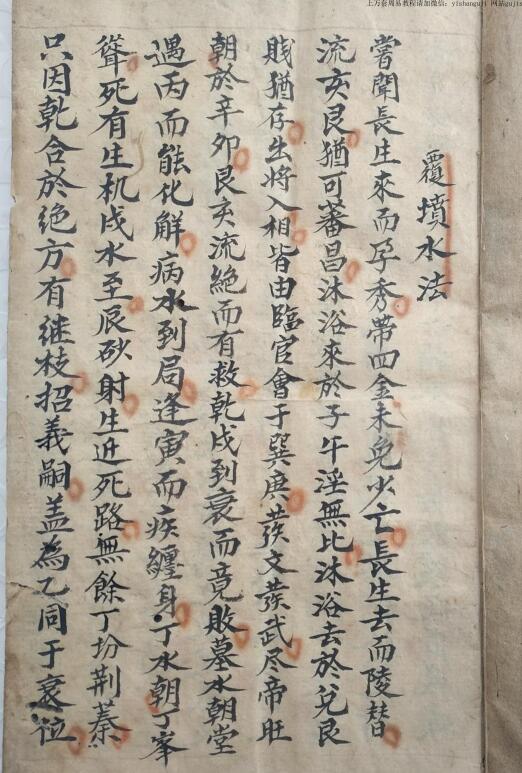 上万套周易教程请加微信：yishanguji 网站gujin
覆墳水法
嘗聞長生來而孕秀帶四金未免少亡長生去而陵替
流亥艮猶可蕃昌沐浴來於子午淫無比沐浴去於兌艮
賎猶存出將入相皆由臨官會于巽庚蓂文蓂武尽帝旺
朝於辛卯艮亥流絶而有救乾戌到衰而竟敗墓水朝堂
遇丙而能化解病水到局逢寅而疾纏身丁水朝丁峯
聳死有生机戌水至辰砂射生近死路無餘丁坋荆蓁
只因乾合於绝方有继枝招義嗣盖為乙同于衰位